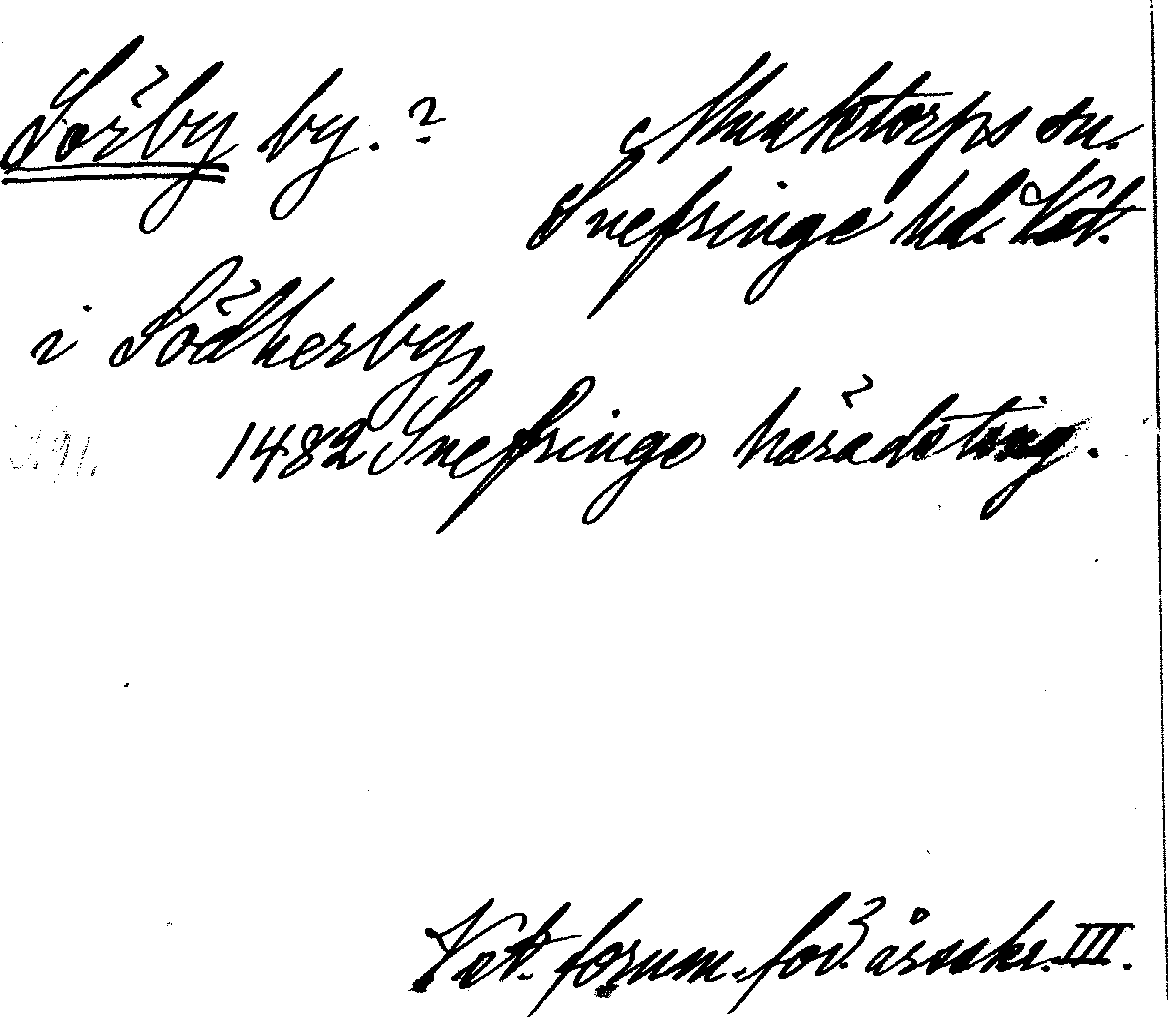 Sörby by. ? Munktorps sn.
Snefringe hd. Vst.
i Södherby,
1482 Snefringe häradsting.
Vst. fornm. för. årsskr. III.